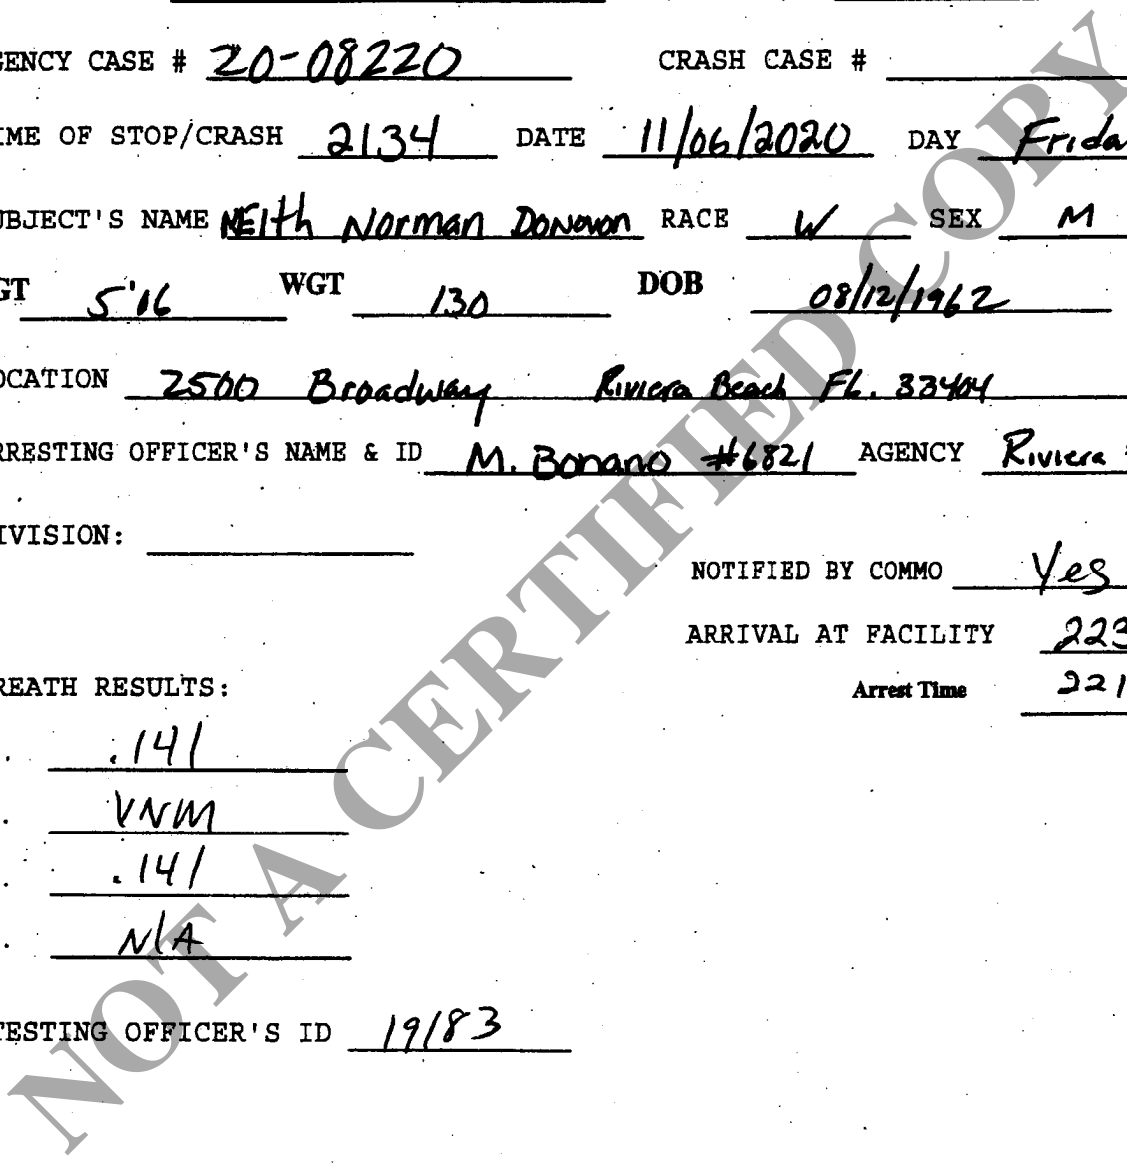 GENCY CASE # 20-08220 CRASH CASE #
IME OF STOP/CRASH 2134 DATE 11/06/2020 DAY Frida
UBJECT'S NAME KEIth Norman Donovon RACE W SEX M
GT 5'16 WGT 130 DOB 08/12/1962
OCATION 2500 Broadway Riviera Beach FL. 33404
RRESTING OFFICER'S NAME & ID M. Bonano #6821 AGENCY Riviera
IVISION:
NOTIFIED BY COMMO Yes
ARRIVAL AT FACILITY 223
REATH RESULTS: Arrest Time 221
. .141
. VNM
. .141
. N/A
TESTING OFFICER'S ID 19183
NOT A CERTIFIED COPY